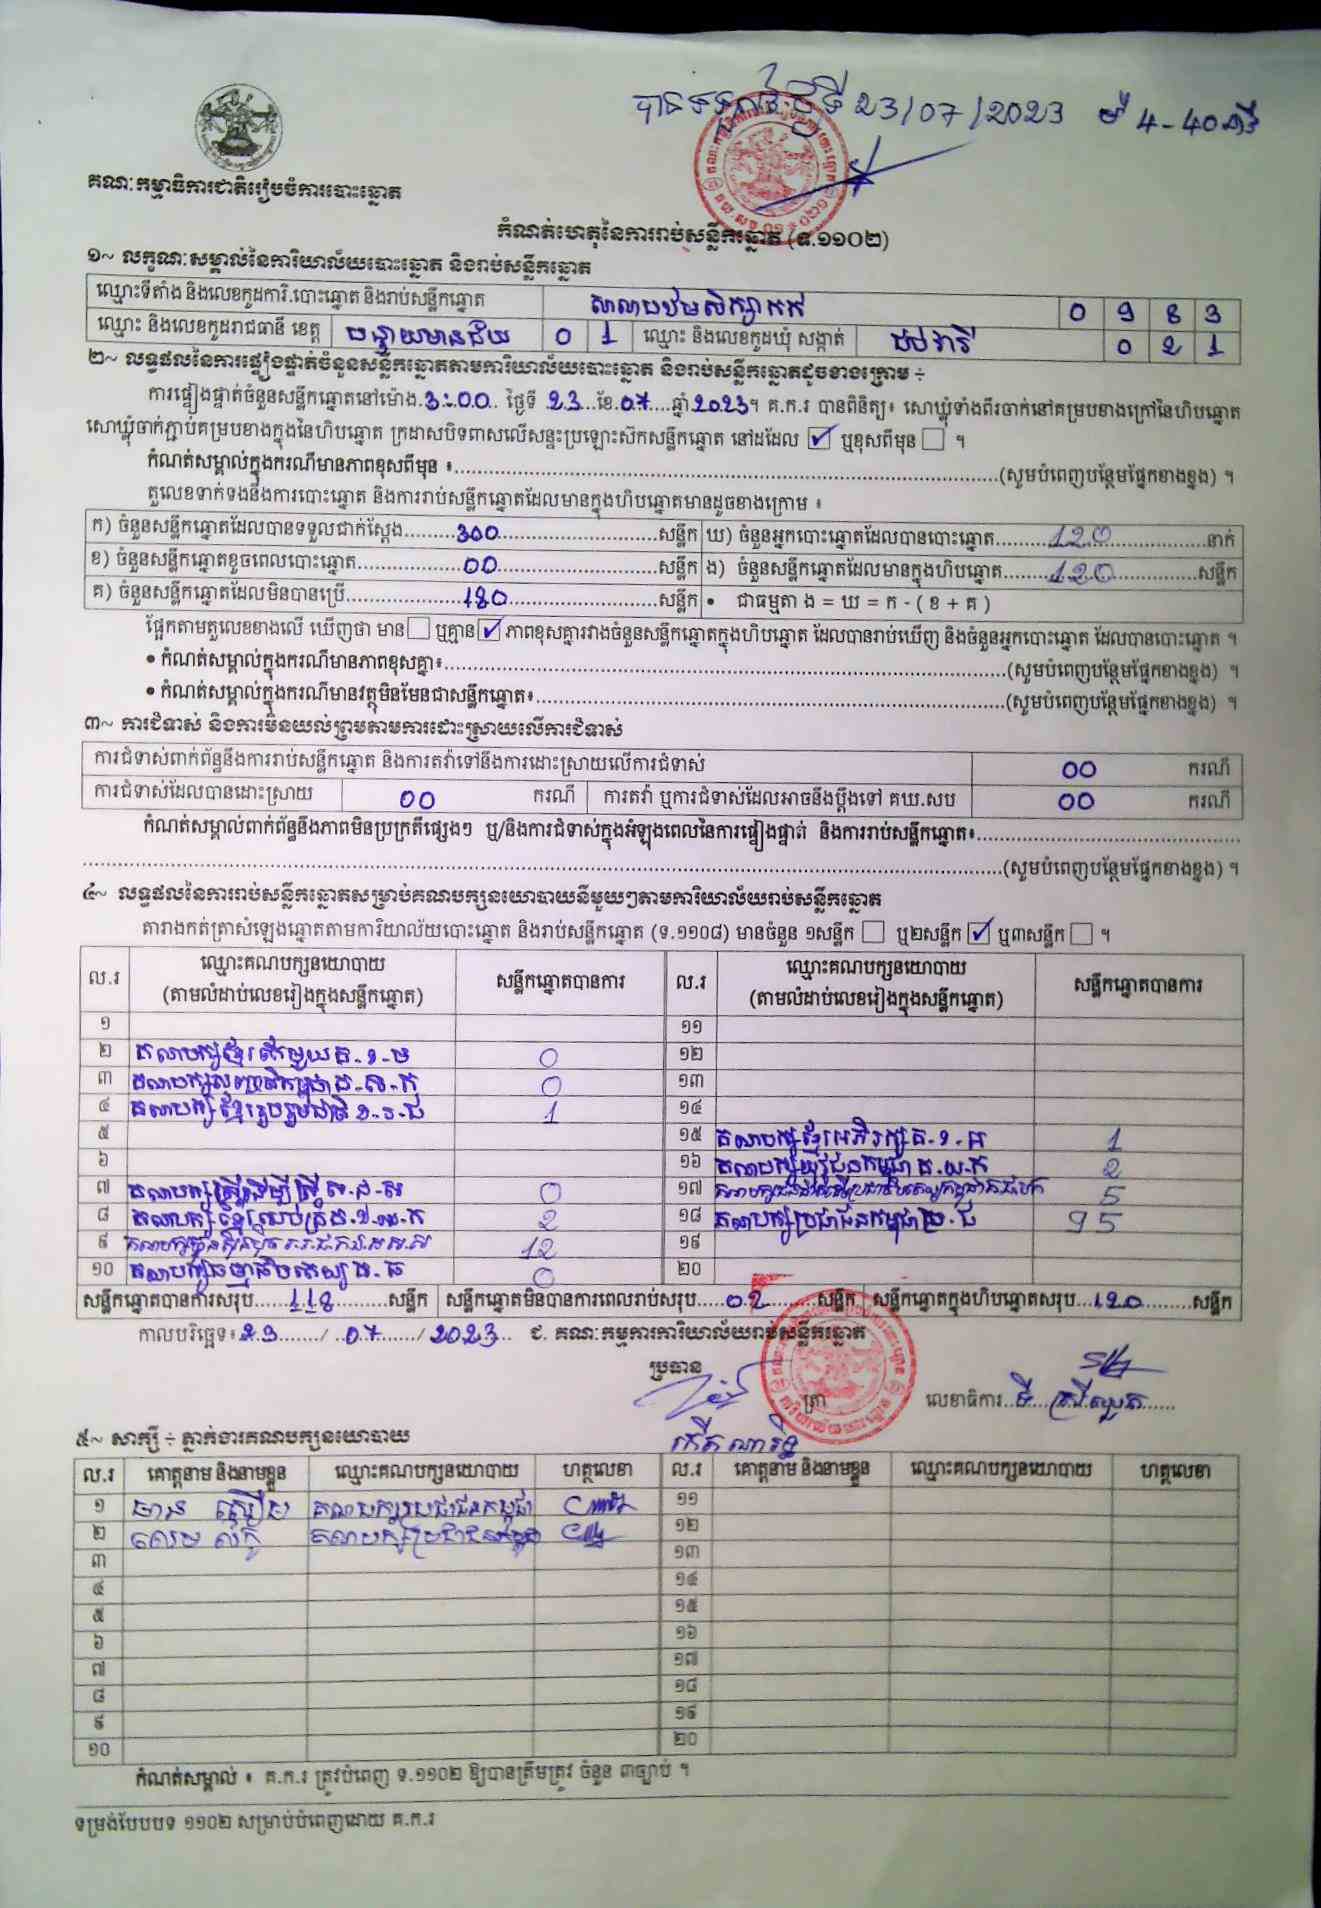 បានទទួលថ្ងៃទី 23/07/2023 ម៉ 4-40នាទី
គណៈកម្មាធិការជាតិរៀបចំការបោះឆ្នោត
កំណត់ហេតុនៃការរាប់សន្លឹកឆ្នោត (ទ.១១០២)
១~ លក្ខណៈសម្គាល់នៃការិយាល័យបោះឆ្នោត និងរាប់សន្លឹកឆ្នោត
ឈ្មោះទីតាំង និងលេខកូដការិ.បោះឆ្នោត និងរាប់សន្លឹកឆ្នោត សាលាបឋមសិក្សា 0 9 8 3
ឈ្មោះ និងលេខកូដរាជធានី ខេត្ត បន្ទាយមានជ័យ 0 1 ឈ្មោះ និងលេខកូដឃុំ សង្កាត់ 0 2 1
២~ លទ្ធផលនៃការផ្ទៀងផ្ទាត់ចំនួនសន្លឹកឆ្នោតតាមការិយាល័យបោះឆ្នោត និងរាប់សន្លឹកឆ្នោតដូចខាងក្រោម ÷
ការផ្ទៀងផ្ទាត់ចំនួនសន្លឹកឆ្នោតនៅម៉ោង.3:00.. ថ្ងៃទី 23...ខែ.07....ឆ្នាំ 2023។ គ.ក.រ បានពិនិត្យ៖ សោឃ្លុំទាំងពីរចាក់នៅគម្របខាងក្រៅនៃហិបឆ្នោត
សោឃ្លុំចាក់ភ្ជាប់គម្របខាងក្នុងនៃហិបឆ្នោត ក្រដាសបិទពាសលើសន្ទះប្រឡោះស៊កសន្លឹកឆ្នោត នៅដដែល ☑ ឬខុសពីមុន ☐ ។
កំណត់សម្គាល់ក្នុងករណីមានភាពខុសពីមុន ៖......(សូមបំពេញបន្ថែមផ្នែកខាងខ្នង) ។
តួលេខទាក់ទងនឹងការបោះឆ្នោត និងការរាប់សន្លឹកឆ្នោតដែលមានក្នុងហិបឆ្នោតមានដូចខាងក្រោម ៖
ក) ចំនួនសន្លឹកឆ្នោតដែលបានទទួលជាក់ស្តែង......300......សន្លឹក ឃ) ចំនួនអ្នកបោះឆ្នោតដែលបានបោះឆ្នោត......120......នាក់
ខ) ចំនួនសន្លឹកឆ្នោតខូចពេលបោះឆ្នោត......00......សន្លឹក ង) ចំនួនសន្លឹកឆ្នោតដែលមានក្នុងហិបឆ្នោត......120......សន្លឹក
គ) ចំនួនសន្លឹកឆ្នោតដែលមិនបានប្រើ......180......សន្លឹក • ជាធម្មតា ង = ឃ = ក - ( ខ + គ )
ផ្អែកតាមតួលេខខាងលើ ឃើញថា មាន☐ ឬគ្មាន☑ ភាពខុសគ្នារវាងចំនួនសន្លឹកឆ្នោតក្នុងហិបឆ្នោត ដែលបានរាប់ឃើញ និងចំនួនអ្នកបោះឆ្នោត ដែលបានបោះឆ្នោត ។
• កំណត់សម្គាល់ក្នុងករណីមានភាពខុសគ្នា៖......(សូមបំពេញបន្ថែមផ្នែកខាងខ្នង) ។
• កំណត់សម្គាល់ក្នុងករណីមានវត្ថុមិនមែនជាសន្លឹកឆ្នោត៖......(សូមបំពេញបន្ថែមផ្នែកខាងខ្នង) ។
៣~ ការជំទាស់ និងការមិនយល់ព្រមតាមការដោះស្រាយលើការជំទាស់
ការជំទាស់ពាក់ព័ន្ធនឹងការរាប់សន្លឹកឆ្នោត និងការតវ៉ាទៅនឹងការដោះស្រាយលើការជំទាស់ 00 ករណី
ការជំទាស់ដែលបានដោះស្រាយ 00 ករណី ការតវ៉ា ឬការជំទាស់ដែលអាចនឹងប្តឹងទៅ គឃ.សប 00 ករណី
កំណត់សម្គាល់ពាក់ព័ន្ធនឹងភាពមិនប្រក្រតីផ្សេងៗ ឬ/និងការជំទាស់ក្នុងអំឡុងពេលនៃការផ្ទៀងផ្ទាត់ និងការរាប់សន្លឹកឆ្នោត៖......
......(សូមបំពេញបន្ថែមផ្នែកខាងខ្នង) ។
៤~ លទ្ធផលនៃការរាប់សន្លឹកឆ្នោតសម្រាប់គណបក្សនយោបាយនីមួយៗតាមការិយាល័យរាប់សន្លឹកឆ្នោត
តារាងកត់ត្រាសំឡេងឆ្នោតតាមការិយាល័យបោះឆ្នោត និងរាប់សន្លឹកឆ្នោត (ទ.១១០៨) មានចំនួន ១សន្លឹក ☐ ឬ២សន្លឹក ☑ ឬ៣សន្លឹក ☐ ។
ល.រ ឈ្មោះគណបក្សនយោបាយ (តាមលំដាប់លេខរៀងក្នុងសន្លឹកឆ្នោត) សន្លឹកឆ្នោតបានការ ល.រ ឈ្មោះគណបក្សនយោបាយ (តាមលំដាប់លេខរៀងក្នុងសន្លឹកឆ្នោត) សន្លឹកឆ្នោតបានការ
១ ១១
២ គណបក្សខ្មែរតែមួយ គ.ខ.ម 0 ១២
៣ 0 ១៣
៤ គណបក្សខ្មែររួបរួមជាតិ ខ.រ.ជ 1 ១៤
៥ ១៥ គណបក្សខ្មែរអភិរក្ស គ.ខ.អ 1
៦ ១៦ គណបក្សយុវជនកម្ពុជា គ.យ.ក 2
៧ គណបក្សស្ត្រីដើម្បីស្ត្រី ស.ដ.ស 0 ១៧ 5
៨ 2 ១៨ គណបក្សប្រជាជនកម្ពុជា ប្រ.ជ 95
៩ គណបក្សហ្វ៊ុនស៊ិនប៉ិច 12 ១៩
១០ គណបក្សធម្មាធិបតេយ្យ គ.ធ 0 ២០
សន្លឹកឆ្នោតបានការសរុប......118......សន្លឹក សន្លឹកឆ្នោតមិនបានការពេលរាប់សរុប.....02......សន្លឹក សន្លឹកឆ្នោតក្នុងហិបឆ្នោតសរុប...120......សន្លឹក
កាលបរិច្ឆេទ៖23....../..07....../ 2023... ជ. គណៈកម្មការការិយាល័យរាប់សន្លឹកឆ្នោត
ប្រធាន
ត្រា លេខាធិការ..ទី
កើត ណារិទ្ធ
៥~ សាក្សី ÷ ភ្នាក់ងារគណបក្សនយោបាយ
ល.រ គោត្តនាម និងនាមខ្លួន ឈ្មោះគណបក្សនយោបាយ ហត្ថលេខា ល.រ គោត្តនាម និងនាមខ្លួន ឈ្មោះគណបក្សនយោបាយ ហត្ថលេខា
១ គណបក្សប្រជាជនកម្ពុជា ១១
២ គណបក្សប្រជាជនកម្ពុជា ១២
៣ ១៣
៤ ១៤
៥ ១៥
៦ ១៦
៧ ១៧
៨ ១៨
៩ ១៩
១០ ២០
កំណត់សម្គាល់ ៖ គ.ក.រ ត្រូវបំពេញ ទ.១១០២ ឱ្យបានត្រឹមត្រូវ ចំនួន ៣ច្បាប់ ។
ទម្រង់បែបបទ ១១០២ សម្រាប់បំពេញដោយ គ.ក.រ